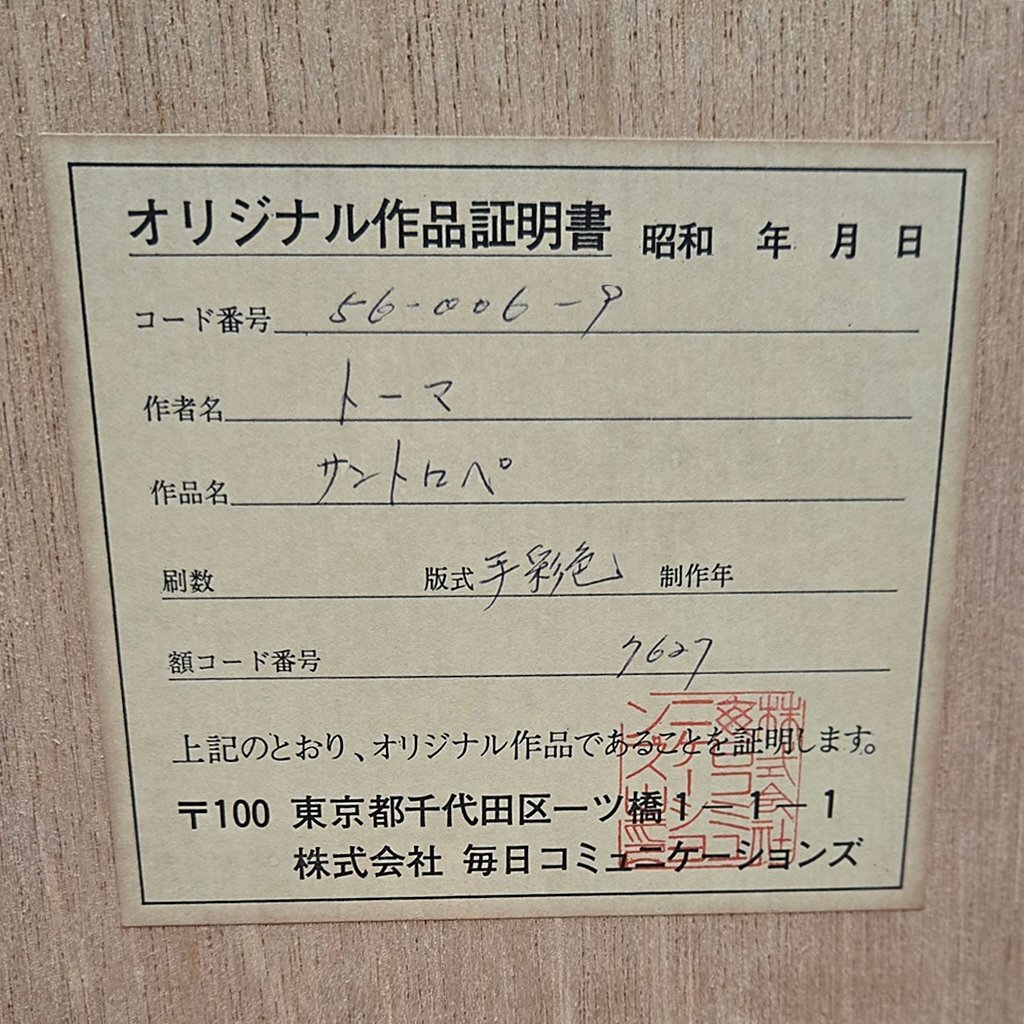 オリジナル作品証明書 昭和 年 月 日
コード番号 56-006-9
作者名 トーマ
作品名 サントロペ
刷数 版式 手彩色 制作年
額コード番号 7627
上記のとおり、オリジナル作品であることを証明します。
〒100 東京都千代田区一ツ橋1－1－1
株式会社 毎日コミュニケーションズ